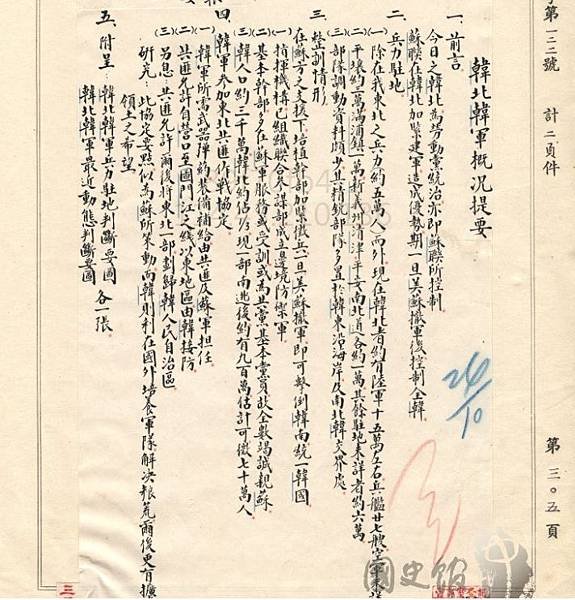 第一三二號　計二頁件
第三〇五頁
韓北韓軍概況提要
一、前言
今日之韓北為勞動黨統治亦即蘇聯所控制
蘇聯在韓北加緊建軍造成優勢期一旦美蘇撤軍後控制全韓
二、兵力駐地
(一)除在我東北之兵力約五萬人而外現在韓北者約有陸軍十五萬左右兵艦廿七艘空軍
平壤約一萬滿浦鎮一萬新義州清津平安南北道各約一萬其餘駐地未詳者約六萬
(二)部隊調動資料頗少其精銳部隊多置於韓東沿海岸及南北韓交界處
三、整訓情形
(一)在蘇方之支援下培植幹部加緊徵兵一旦美蘇撤軍即可擊倒韓南統一韓國
指揮機構已組織聯合參謀部成立邊境防禦軍
(二)基本幹部多在蘇軍服務或受訓或為共黨基本黨員故全數竭誠親蘇
(三)韓人口約三千萬韓北約佔⅓現一部南逃後約有九百萬估計可徵七十萬人
四、韓軍參加東北共匪作戰協定
(一)韓軍所需武器彈藥裝備補給由共匪及蘇軍担任
(二)共匪允許自營口至圖門江之綫以東地區由韓接防
(三)另息：共匪允許爾後將東北一部劃歸韓人民自治區
研究：此協定要點似為蘇所策動而韓則利在國外培食軍隊解決粮荒爾後更有擴
領土之希望
五、附呈：韓北韓軍兵力駐地判斷要圖
韓北韓軍最近動態判斷要圖　各一張
24/10
國史館